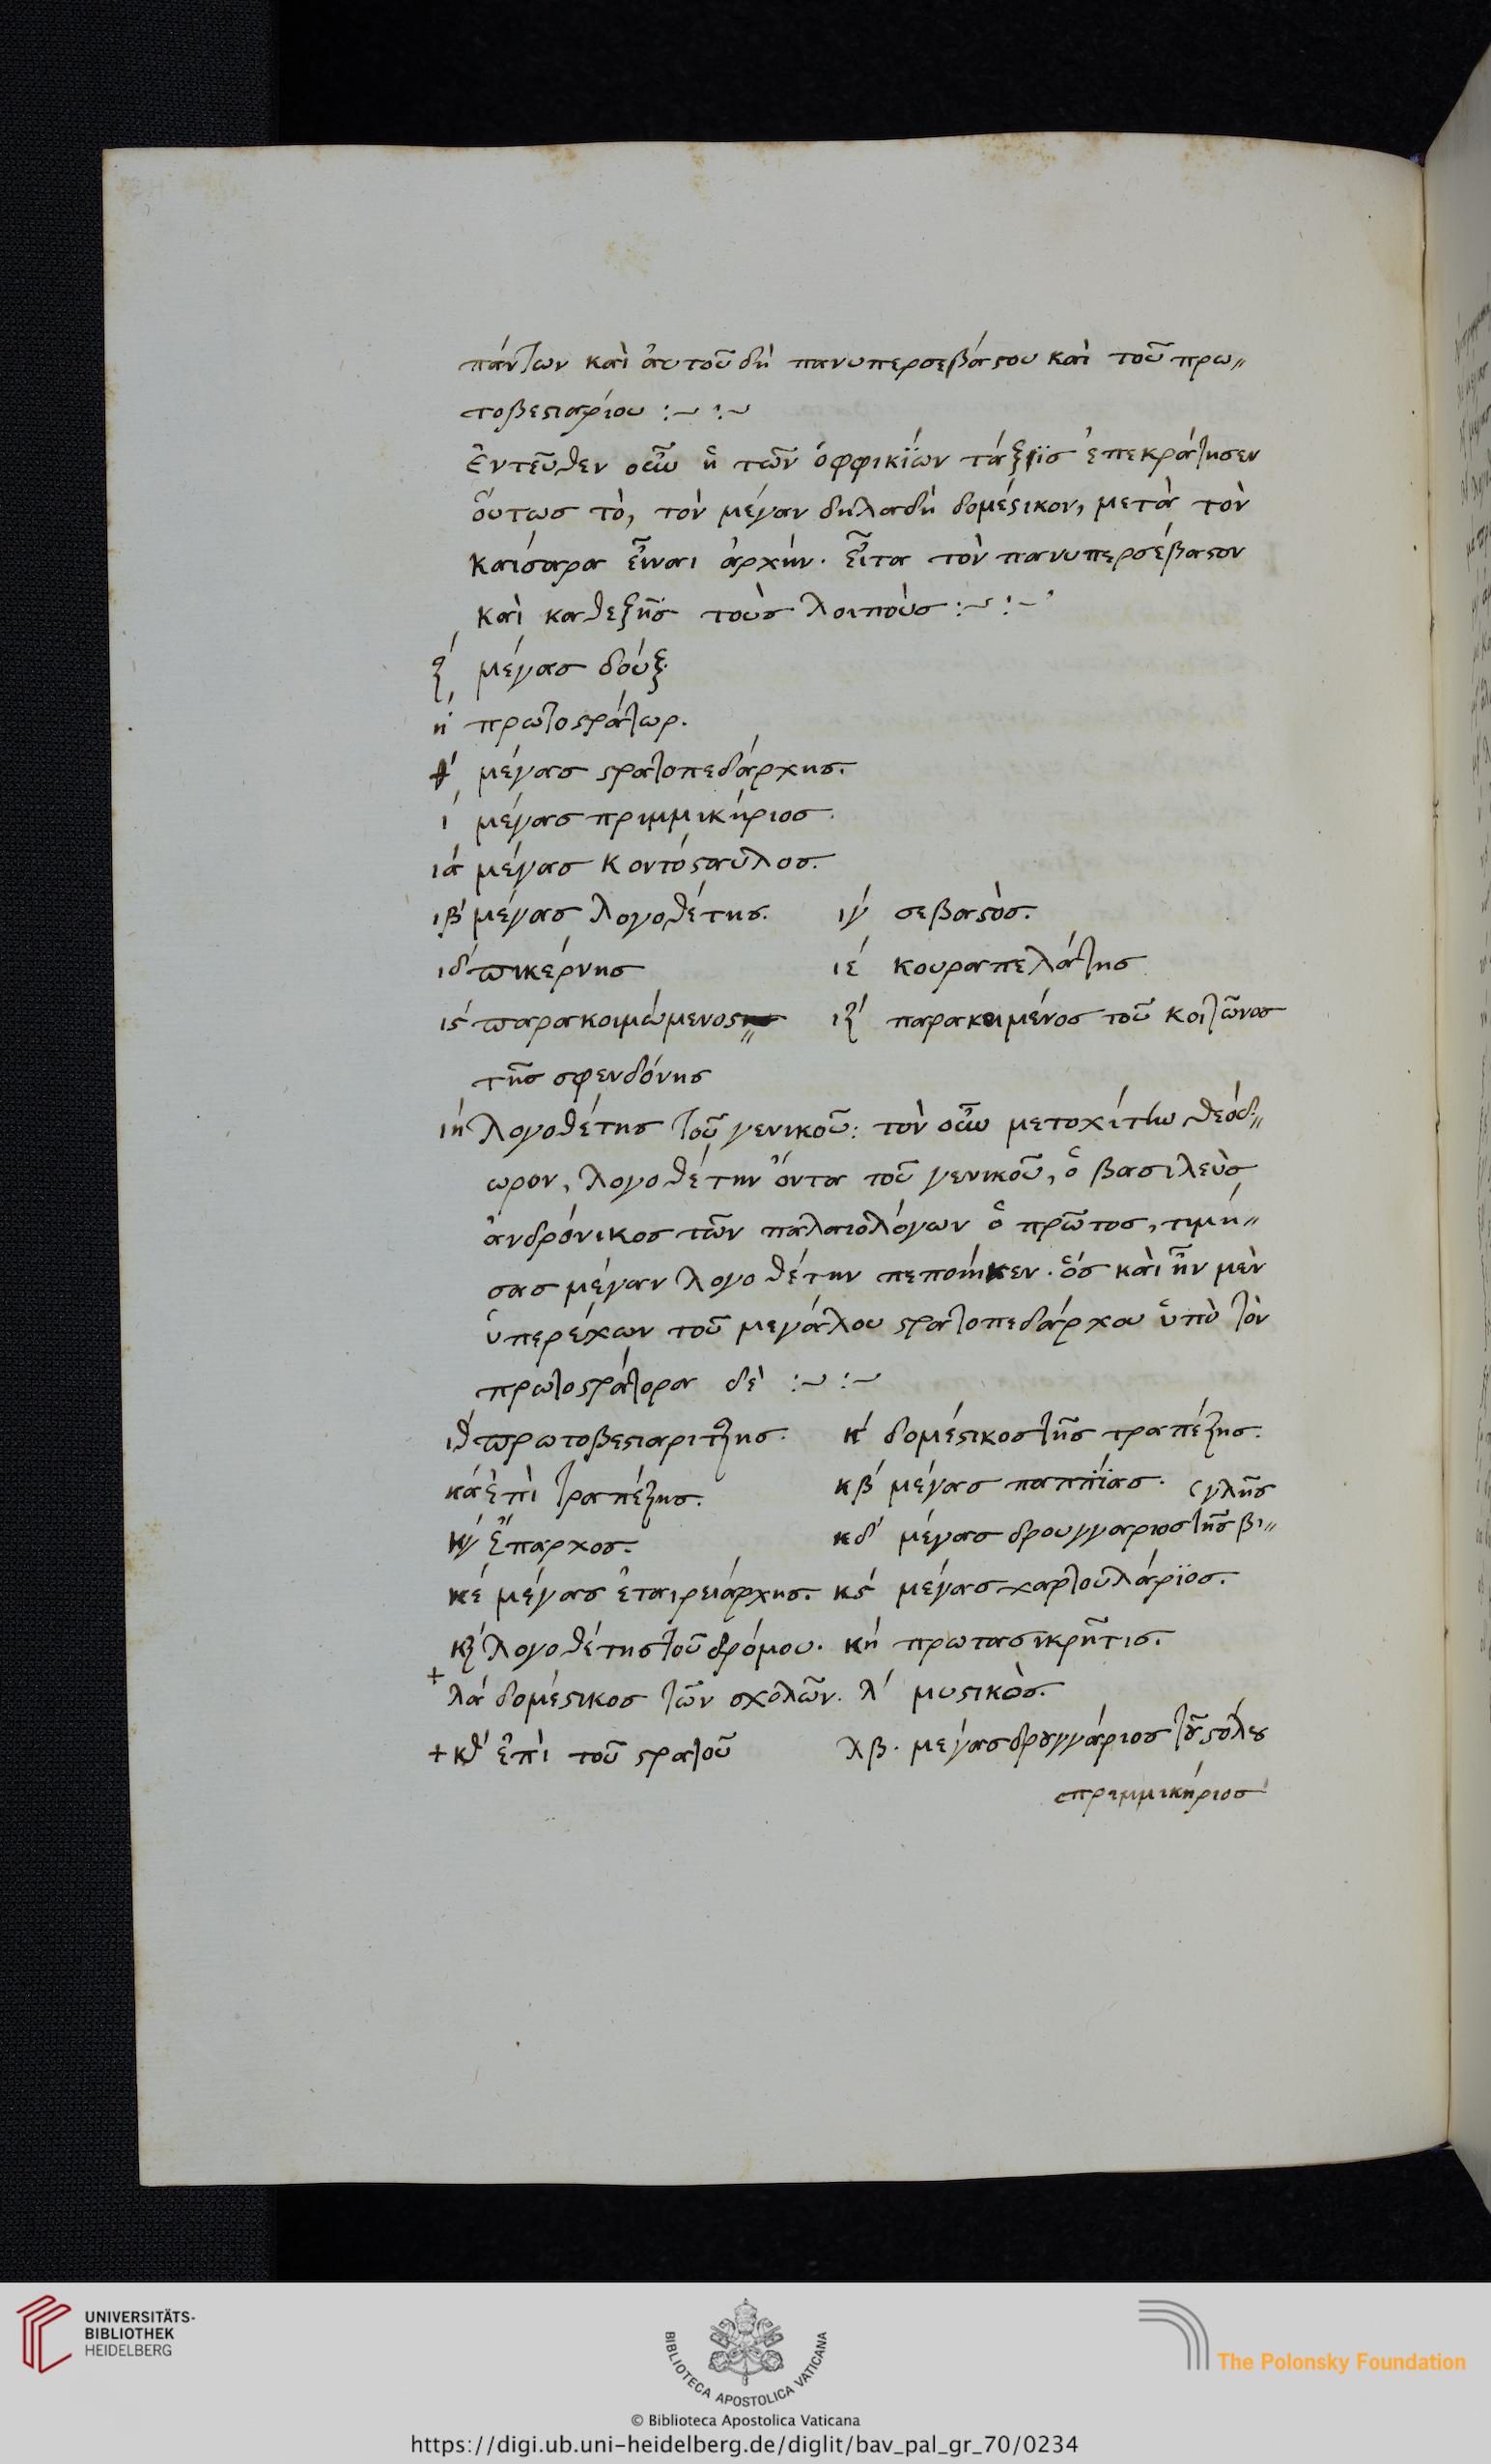 πάντων καὶ ἀυτοῦ δὴ πανυπερσεβάστου καὶ τοῦ πρω〃
τοβεστιαρίου :~ :~
Ἐντεῦθεν οὖν ἡ τῶν ὀφφικΐων τάξϊσ ἐπεκράτησεν
ὅυτωσ τὸ, τὸν μέγαν δηλαδὴ δομέστικον, μετὰ τὸν
καισαρα εἶναι ἀρχήν. εἶτα τὸν πανυπερσέβαστον
καὶ καθεξῆς τοὺσ λοιποὺσ :~ :~
ζ́ μέγασ δούξ.
ή πρωτοστράτωρ.
θ́ μέγασ στρατοπεδάρχησ.
ί μέγασ πριμμικήριοσ.
ιά μέγασ κοντόσταυλοσ.
ιβ́ μέγασ λογοθέτησ. ιγ́ σεβαστὸσ.
ιδ́ πικέρνησ ιέ κουραπελάτησ
ις́ παρακοιμώμενος〃 ιζ́ παρακειμένοσ τοῦ κοιτῶνοσ
τῆσ σφενδόνησ
ιή λογοθέτησ τοῦ γενικοῦ: τὸν οὖν μετοχίτην θεόδ〃
ωρον, λογοθέτην ὄντα τοῦ γενικοῦ, ὁ βασιλεὺσ
ἀνδρόνικοσ τῶν παλαιολόγων ὁ πρῶτοσ, τιμή〃
σασ μέγαν λογοθέτην πεποίηκεν. ὅσ καὶ ἦν μὲν
ὑπερέχων τοῦ μεγάλου στρατοπεδάρχου ὑπὸ τὸν
πρωτοστράτορα δὲ :~ :~
ιθ́ πρωτοβεστιαρίτησ. κ́ δομέστικοσ τῆσ τραπέζησ.
κά ἐπὶ τραπέζησ. κβ́ μέγασ παππΐασ. γλῆσ
κγ́ Ἔπαρχοσ. κδ́ μέγασ δρουγγαριοσ τῆσ βι〃
κέ μέγασ ἑταιρειάρχησ. κς́ μέγασ χαρτουλάρϊοσ.
κζ́ λογοθέτησ τοῦ δρόμου. κή πρωτασικρῆτισ.
+
λά δομέστικοσ τῶν σχολῶν. λ́ μυστικὸσ.
+ κθ́ ἐπὶ τοῦ στρατοῦ λβ. μέγασ δρουγγάριοσ τοῦ στόλου
πριμμικήριοσ
UNIVERSITÄTS-
BIBLIOTHEK
HEIDELBERG
BIBLIOTECA APOSTOLICA VATICANA
The Polonsky Foundation
© Biblioteca Apostolica Vaticana
https://digi.ub.uni-heidelberg.de/diglit/bav_pal_gr_70/0234